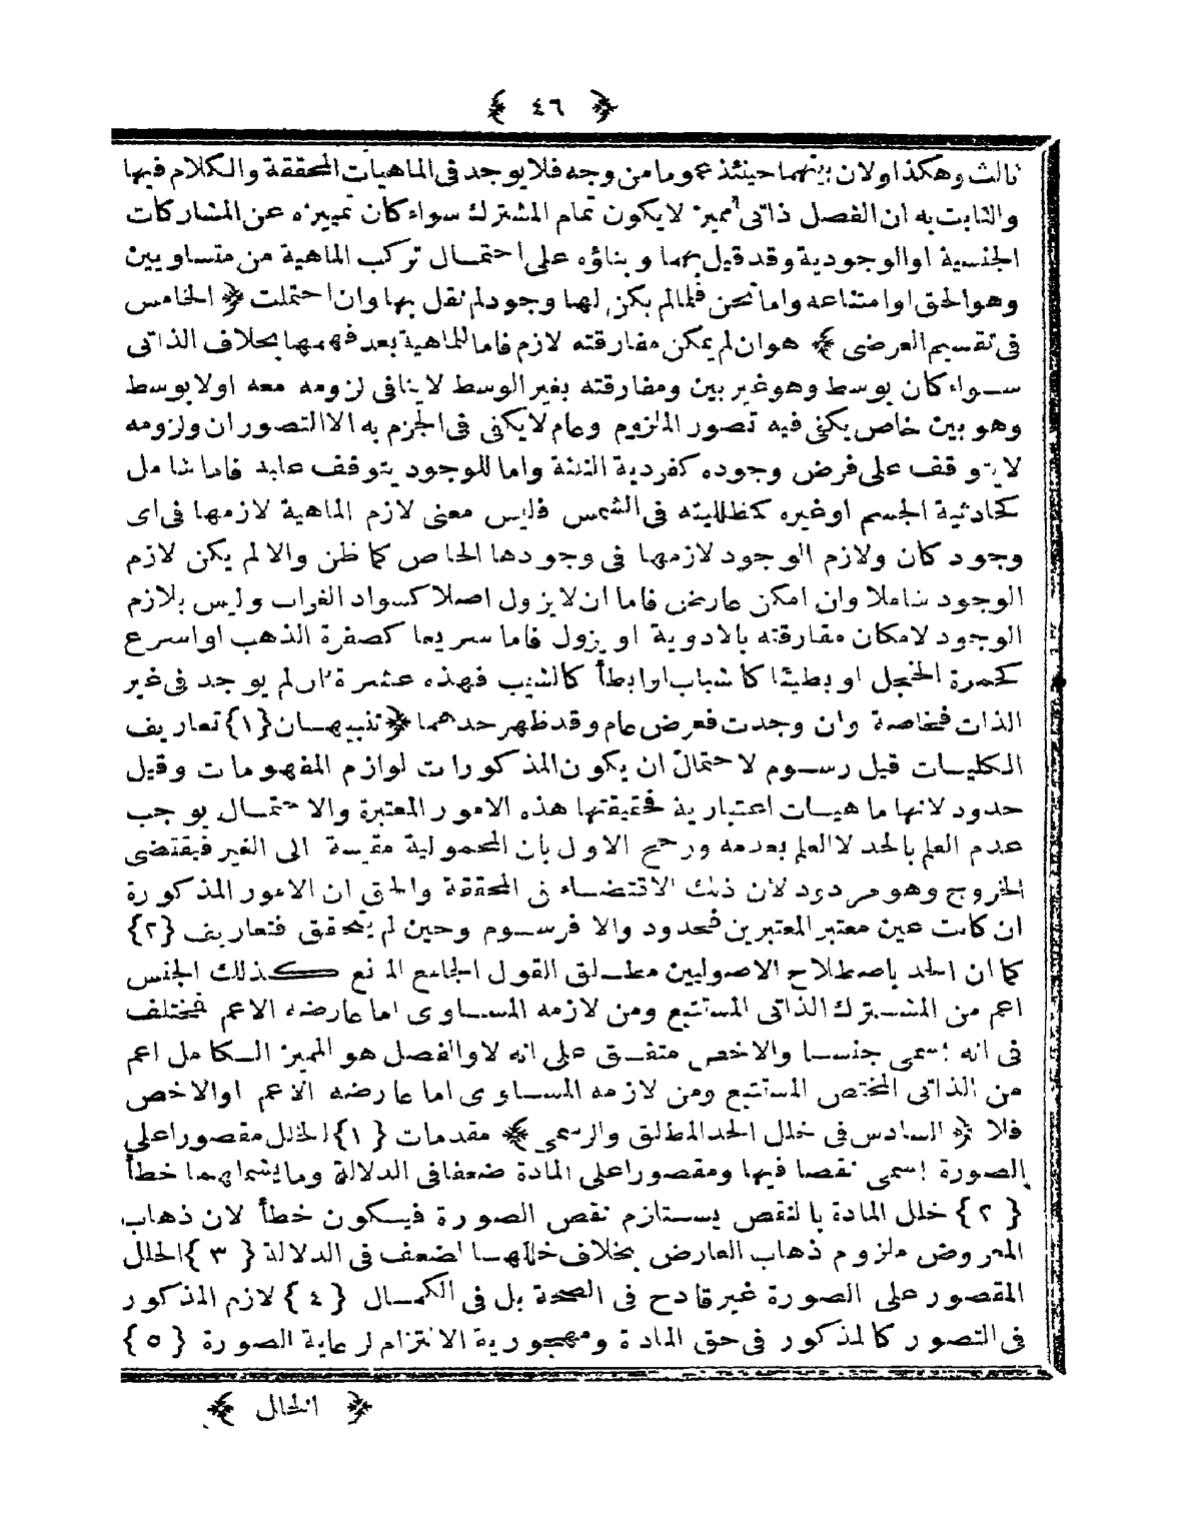 ﴿ ٤٦ ﴾
ثالث وهكذا ولان بينهما حينئذ عموما من وجه فلا يوجد فى الماهيات المحققة والكلام فيها
والثابت به ان الفصل ذاتى مميز لا يكون تمام المشترك سواء كان تمييزه عن المشاركات
الجنسية او الوجودية وقد قيل بهما وبناؤه على احتمال تركب الماهية من متساويين
وهو الحق او امتناعه واما نحن فلما لم يكن لها وجود لم نقل بها وان احتملت ﴿ الخامس
فى تقسيم العرضى ﴾ هو ان لم يمكن مفارقته لازم فاما للماهية بعد فهمها بخلاف الذاتى
سواء كان بوسط وهو غير بين ومفارقته بغير الوسط لا ينافى لزومه معه اولا بوسط
وهو بين خاص يكفى فيه تصور الملزوم وعام لا يكفى فى الجزم به الا التصوران ولزومه
لا يتوقف على فرض وجوده كفردية الثلثة واما للوجود يتوقف عليه فاما شامل
كحادثية الجسم او غيره كظلليته فى الشمس فليس معنى لازم الماهية لازمها فى اى
وجود كان ولازم الوجود لازمها فى وجودها الخاص كما ظن والا لم يكن لازم
الوجود شاملا وان امكن عارض فاما ان لا يزول اصلا كسواد الغراب وليس بلازم
الوجود لامكان مفارقته بالادوية او يزول فاما سريعا كصفرة الذهب او اسرع
كحمرة الخجل او بطيئا كالشباب او ابطأ كالشيب فهذه عشرة ان لم يوجد فى غير
الذات فخاصة وان وجدت فعرض عام وقد ظهر حدهما ﴿ تنبيهان {١} تعاريف
الكليات قيل رسوم لاحتمال ان يكون المذكورات لوازم المفهومات وقيل
حدود لانها ماهيات اعتبارية فحقيقتها هذه الامور المعتبرة والاحتمال يوجب
عدم العلم بالحد لا العلم بعدمه ورجح الاول بان المحمولية مقيسة الى الغير فيقتضى
الخروج وهو مردود لان ذلك الاقتضاء فى المحققة والحق ان الامور المذكورة
ان كانت عين معتبر المعتبرين فحدود والا فرسوم وحين لم يتحقق فتعاريف {٢}
كما ان الحد باصطلاح الاصوليين مطلق القول الجامع المانع كذلك الجنس
اعم من المشترك الذاتى المستتبع ومن لازمه المساوى اما عارضه الاعم فمختلف
فى انه يسمى جنسا والاخص متفق على انه لا والفصل هو المميز الكامل اعم
من الذاتى المختص المستتبع ومن لازمه المساوى اما عارضه الاعم او الاخص
فلا ﴿ السادس فى خلل الحد المطلق والرسمى ﴾ مقدمات {١} الخلل مقصورا على
الصورة يسمى نقصا فيها ومقصورا على المادة ضعفا فى الدلالة وما يشملهما خطأ
{٢} خلل المادة بالنقص يستلزم نقص الصورة فيكون خطأ لان ذهاب
المعروض ملزوم ذهاب العارض بخلاف خللها لضعف فى الدلالة {٣} الخلل
المقصور على الصورة غير قادح فى الصحة بل فى الكمال {٤} لازم المذكور
فى التصور كالمذكور فى حق المادة ومهجورية الالتزام لرعاية الصورة {٥}
﴿ الخلل ﴾